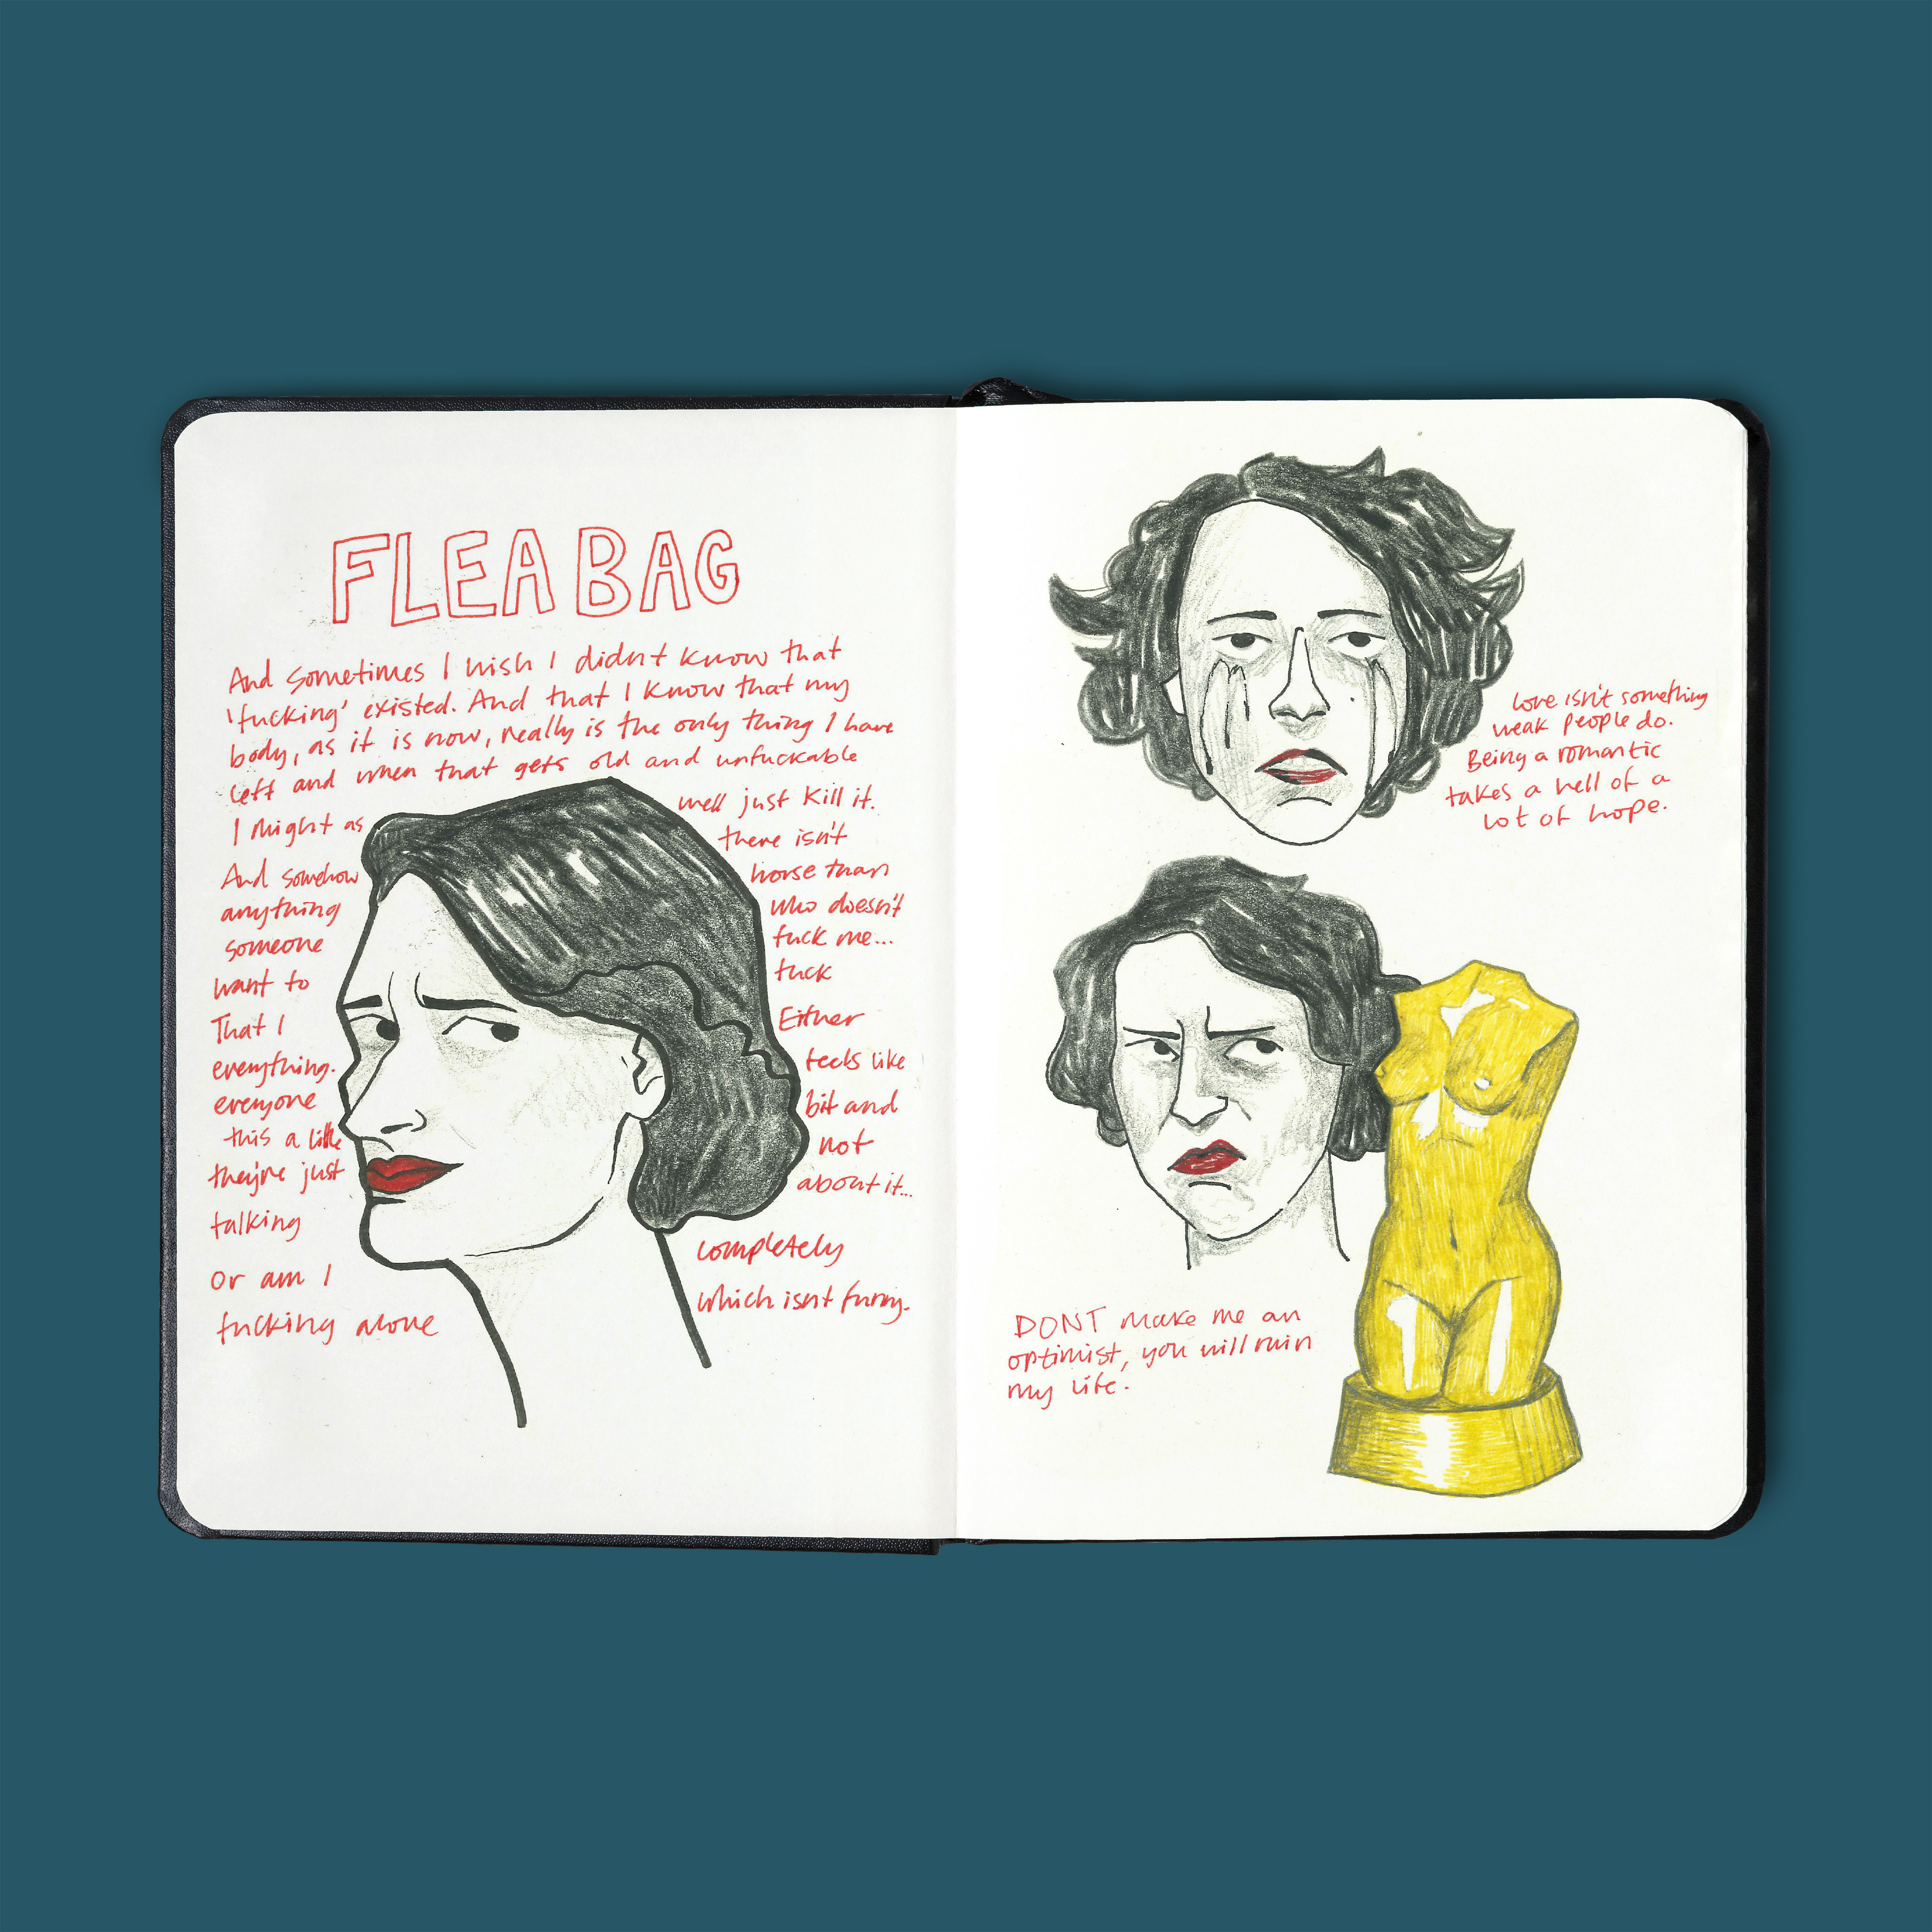 FLEABAG
And sometimes I wish I didnt know that
'fucking' existed. And that I know that my
body, as it is now, really is the only thing I have
left and when that gets old and unfuckable
I might as well just kill it.
And somehow there isn't
anything worse than
someone who doesn't
want to fuck me...
That I fuck
everything. Either
everyone feels like
this a little bit and
they're just not
talking about it...
Or am I completely
fucking alone which isnt funny.
Love isn't something
weak people do.
Being a romantic
takes a hell of a
lot of hope.
DONT make me an
optimist, you will ruin
my life.